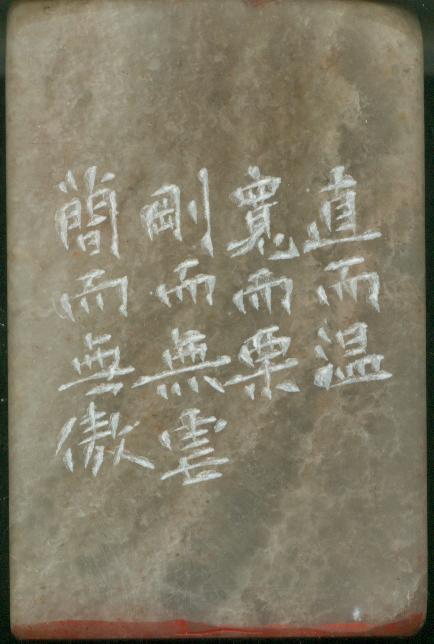 直而温
寬而栗
剛而無虐
簡而無傲